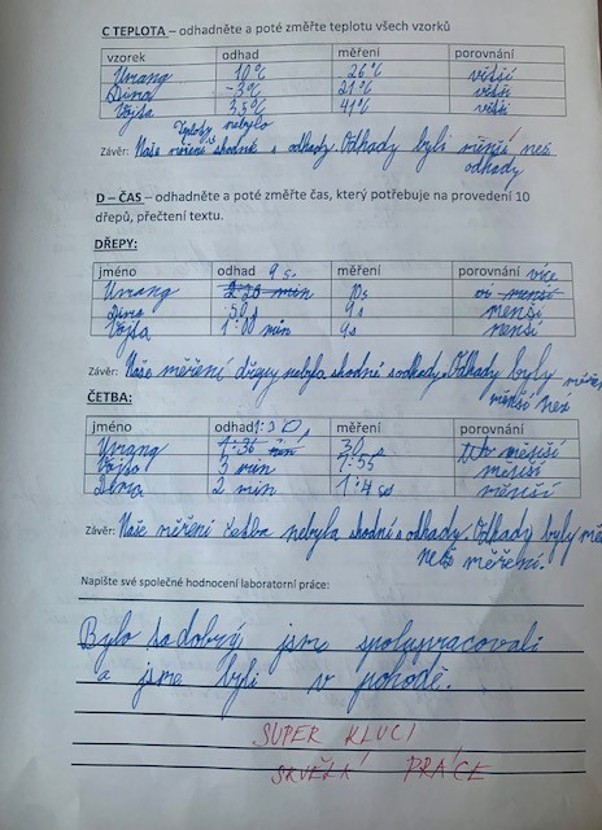 C TEPLOTA – odhadněte a poté změřte teplotu všech vzorků
vzorek odhad měření porovnání
Urang 10°C 26°C větší
Dima -3°C 21°C větší
Vojta 35°C 41°C větší
Teploty nebylo
Závěr: Naše měření shodné s odhady. Odhady byli měnší než
odhady
D – ČAS – odhadněte a poté změřte čas, který potřebuje na provedení 10
dřepů, přečtení textu.
DŘEPY:
jméno odhad 9 s. měření porovnání více
Urang 10s
Dima 50s 9s menší
Vojta 1:00 min 9s menší
Závěr: Naše měření dřepy nebyla shodné sodhady. Odhady byly
měnší než
ČETBA:
jméno odhad měření porovnání
Urang 1:36 30s
Vojta 3 min 1:55
Dima 2 min měnší
Závěr: Naše měření četba nebyla shodní s odhady. Odhady byly
než měření.
Napište své společné hodnocení laboratorní práce:
Bylo to dobrý jsme spolupracovali
a jsme byli v pohodě.
SUPER KLUCI
SKVĚLÁ PRÁCE